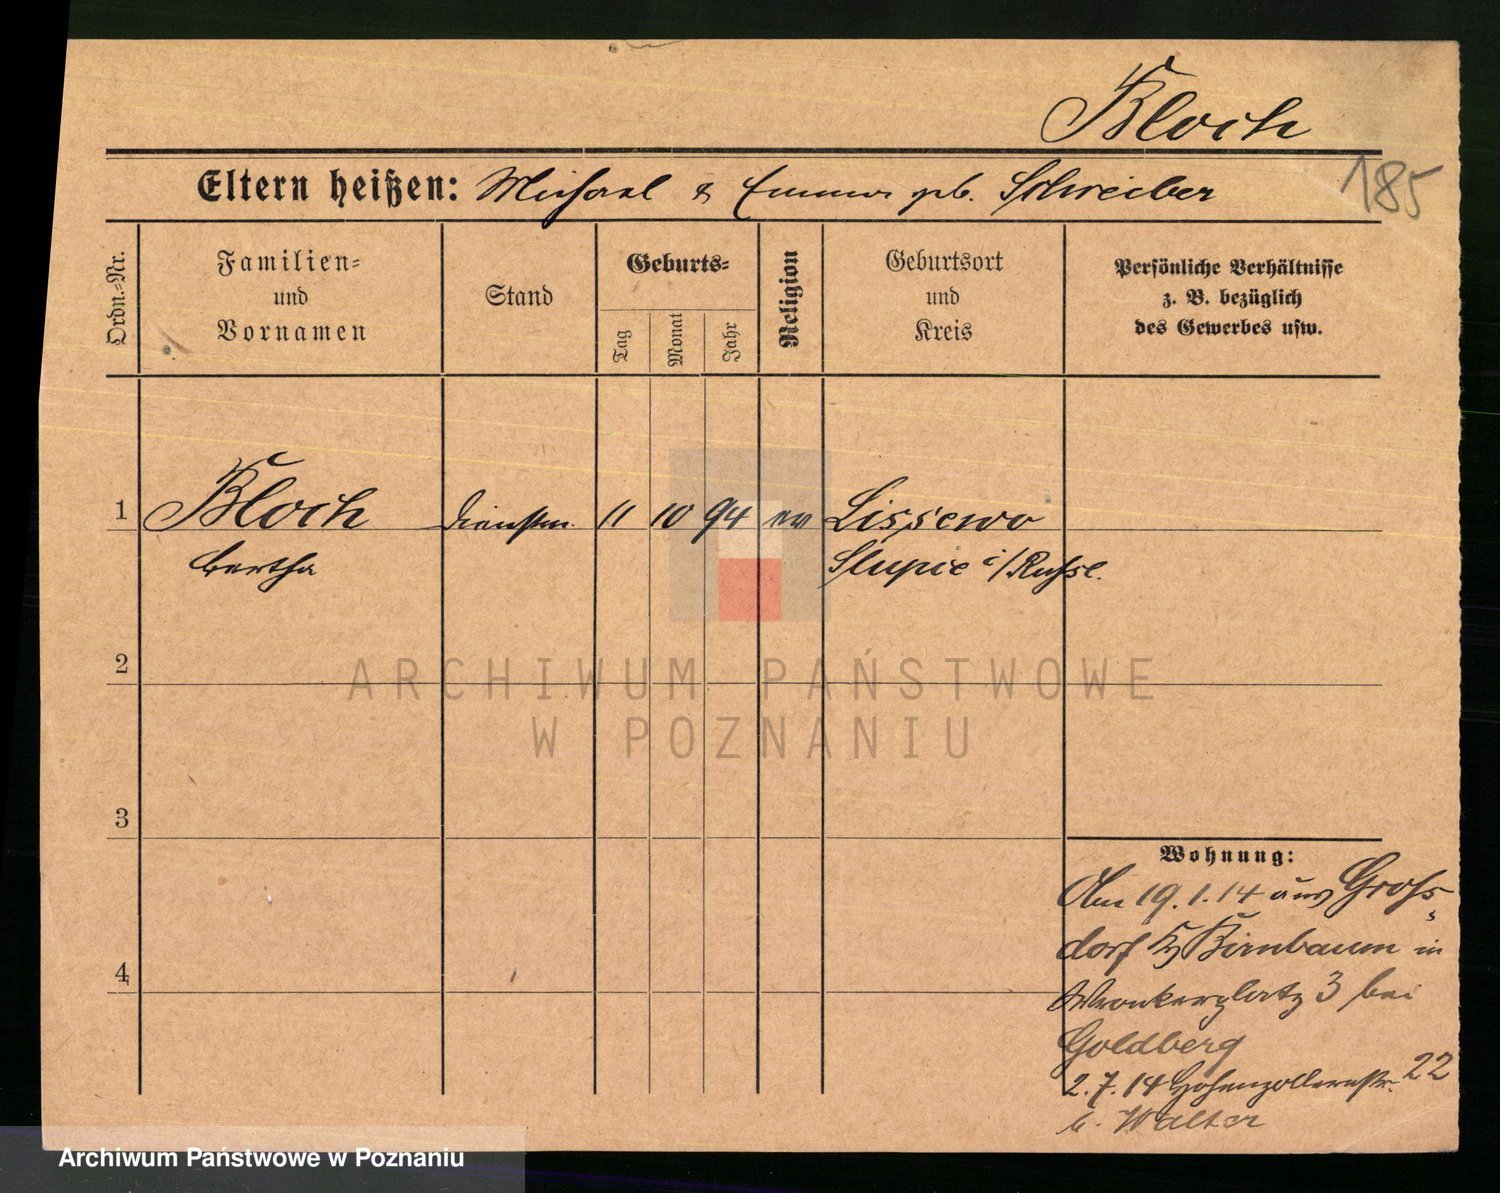 Bloch
Eltern heißen: Michael & Emma geb. Schreiber
185
Ordn.-Nr.
Familien-
und
Vornamen
Stand
Geburts-
Tag
Monat
Jahr
Religion
Geburtsort
und
Kreis
Persönliche Verhältnisse
z. B. bezüglich
des Gewerbes usw.
1 Bloch Dienstm. 11 10 94 ev Lissewo
Bertha Slupie i/Russl.
2
ARCHIWUM PAŃSTWOWE
W POZNANIU
3
Wohnung:
Am 19.1.14 aus Gross-
dorf Kr Birnbaum in
4
Wronkerplatz 3 bei
Goldberg
2.7.14 Hohenzollernstr. 22
b. Walter
Archiwum Państwowe w Poznaniu